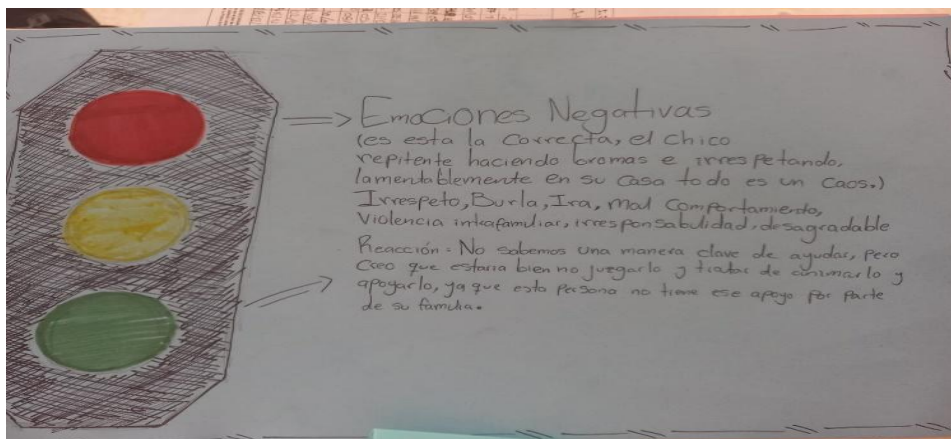 Emociones Negativas
(es esta la correcta, el chico
repitente haciendo bromas e irrespetando,
lamentablemente en su casa todo es un caos.)
Irrespeto, Burla, Ira, mal Comportamiento,
Violencia intrafamiliar, irresponsabilidad, desagradable
Reacción: No sabemos una manera clave de ayudar, pero
Creo que estaria bien no juzgarlo y tratar de animarlo y
apoyarlo, ya que esta persona no tiene ese apoyo por parte
de su familia.